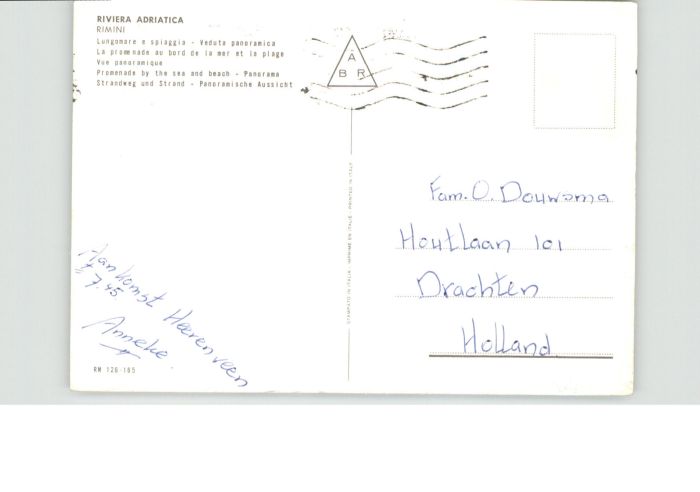 RIVIERA ADRIATICA
RIMINI
Lungomare e spiaggia - Veduta panoramica
La promenade au bord de la mer et la plage
Vue panoramique
Promenade by the sea and beach - Panorama
Strandweg und Strand - Panoramische Aussicht
A
B R
STAMPATO IN ITALIA - IMPRIMÉ EN ITALIE - PRINTED IN ITALY
Fam. O. Douwsma
Houtlaan 101
Drachten
Holland
Aankomst Heerenveen
± 7.45
Anneke
RM 128-185